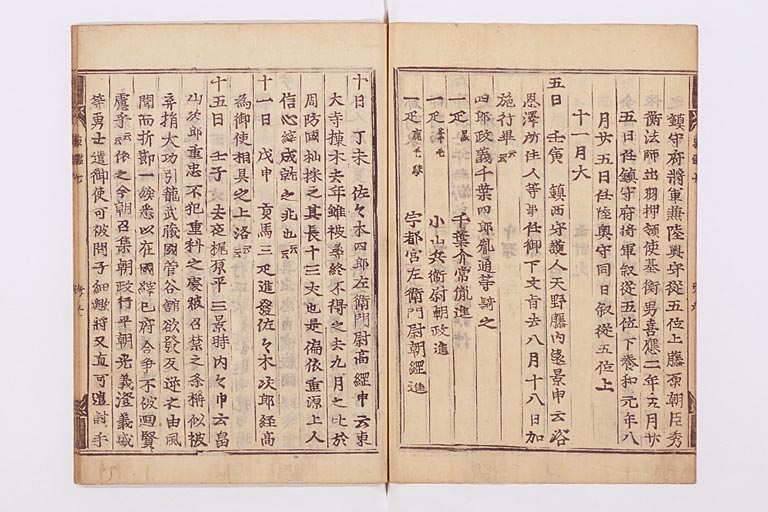 鎮守府將軍兼陸奥守從五位上藤原朝臣秀
衡法師出羽押領使基衡男嘉應二年五月廿
五日任鎮守府將軍叙從五位下養和元年八
月廿五日任陸奥守同日叙從五位上
十一月大
五日 壬寅 鎮西守護人天野藤内遠景申云
恩澤所住人等事任御下文旨去八月十八日加
施行畢云云
四郎政義千葉四郎胤通等騎之
一疋 黒 千葉介常胤進
一疋 葦毛 小山兵衛尉朝政進
一疋 鹿毛駮 宇都宮左衛門尉朝經進
十日 丁未 佐々木四郎左衛門尉高經申云東
大寺棟木去年雖被尋終不得之去九月之比於
周防國杣採之其長十三丈也是偏依重源上人
信心成就之兆也云云
十一日 戊申 貢馬三疋進發佐々木次郎經高
為御使相具之上洛云云
十五日 壬子 去夜梶原平三景時内々申云畠
山次郎重忠不犯重科之處被召禁之条稱似被
弃捐大功引籠武藏國菅谷舘欲發反逆之由風
聞而折節一族悉以在國縡已府合爭不被廻賢
慮乎云云依之今朝召集朝政行平朝光義澄義盛
等勇士遣御使可被問子細歟將又直可遣討手